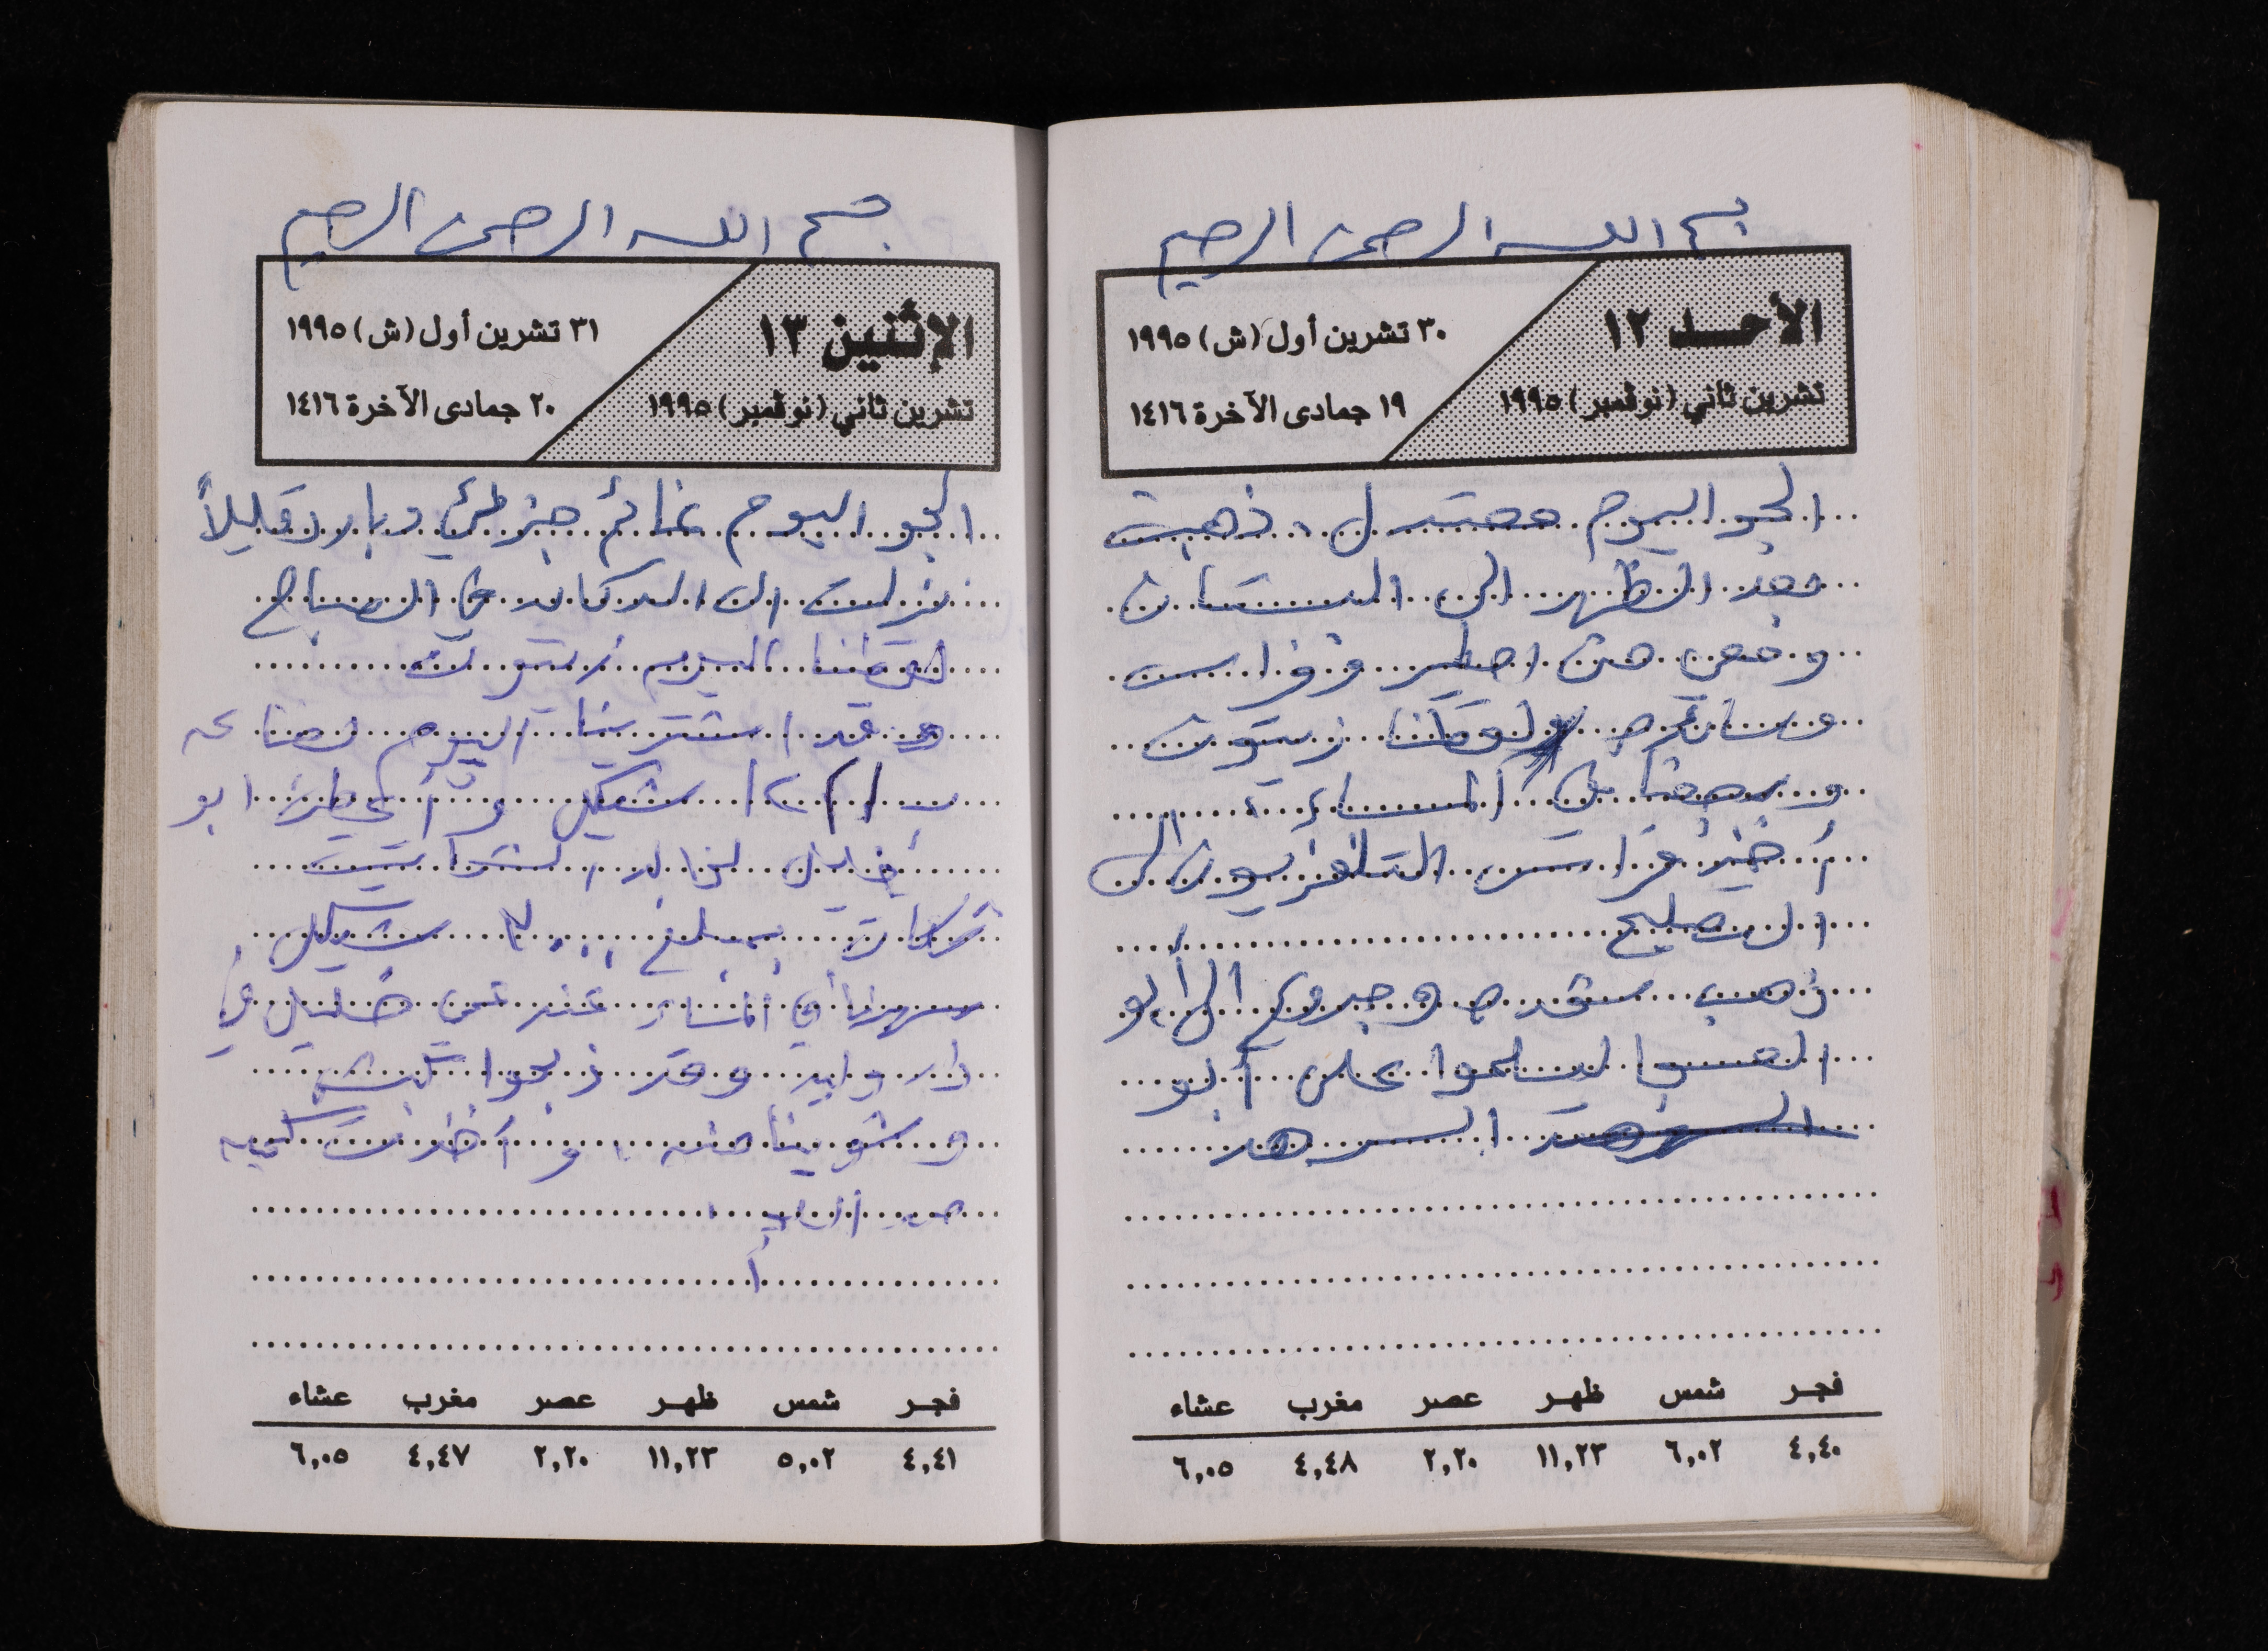 بسم الله الرحمن الرحيم
الأحد ١٢
تشرين ثاني (نوڤمبر) ١٩٩٥
٣٠ تشرين أول (ش) ١٩٩٥
١٩ جمادى الآخرة ١٤١٦
الجو اليوم معتدل، ذهبت
بعد الظهر الى البستان
و معي من اصطر و فراس
و ساتره ولقطنا زيتون
و رجعنا في المساء،
أخذ فراس التلفزيون الى
التصليح
ذهب ستره و جدوع الى أبو
العسبا ليسلموا على أبو
السرهد
فجر شمس ظهر عصر مغرب عشاء
٤,٤٠ ٦,٠٢ ١١,٢٣ ٢,٢٠ ٤,٤٨ ٦,٠٥
بسم الله الرحمن الرحيم
الإثنين ١٣
تشرين ثاني (نوڤمبر) ١٩٩٥
٣١ تشرين أول (ش) ١٩٩٥
٢٠ جمادى الآخرة ١٤١٦
الجو اليوم غائم جزئي و بارد قليلاً
نزلت الى الدكان في الصباح
لقطنا اليوم زيتون
و قد اشترينا اليوم بضاعه
شيكل و أعطى ابو
خليل
بمبلغ ٣٠٠٠ شيكل
سهرنا في المساء عند عمي خليل في
دار وليد و قد ذبحوا كبش
و شوينا منه، و أخذت كميه
من
أ
فجر شمس ظهر عصر مغرب عشاء
٤,٤١ ٥,٠٢ ١١,٢٣ ٢,٢٠ ٤,٤٧ ٦,٠٥